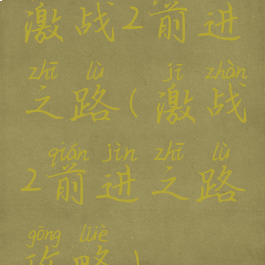 激战2前进
zhī lù jī zhàn
之路(激战
qián jìn zhī lù
2前进之路
gōng lüè
攻略)